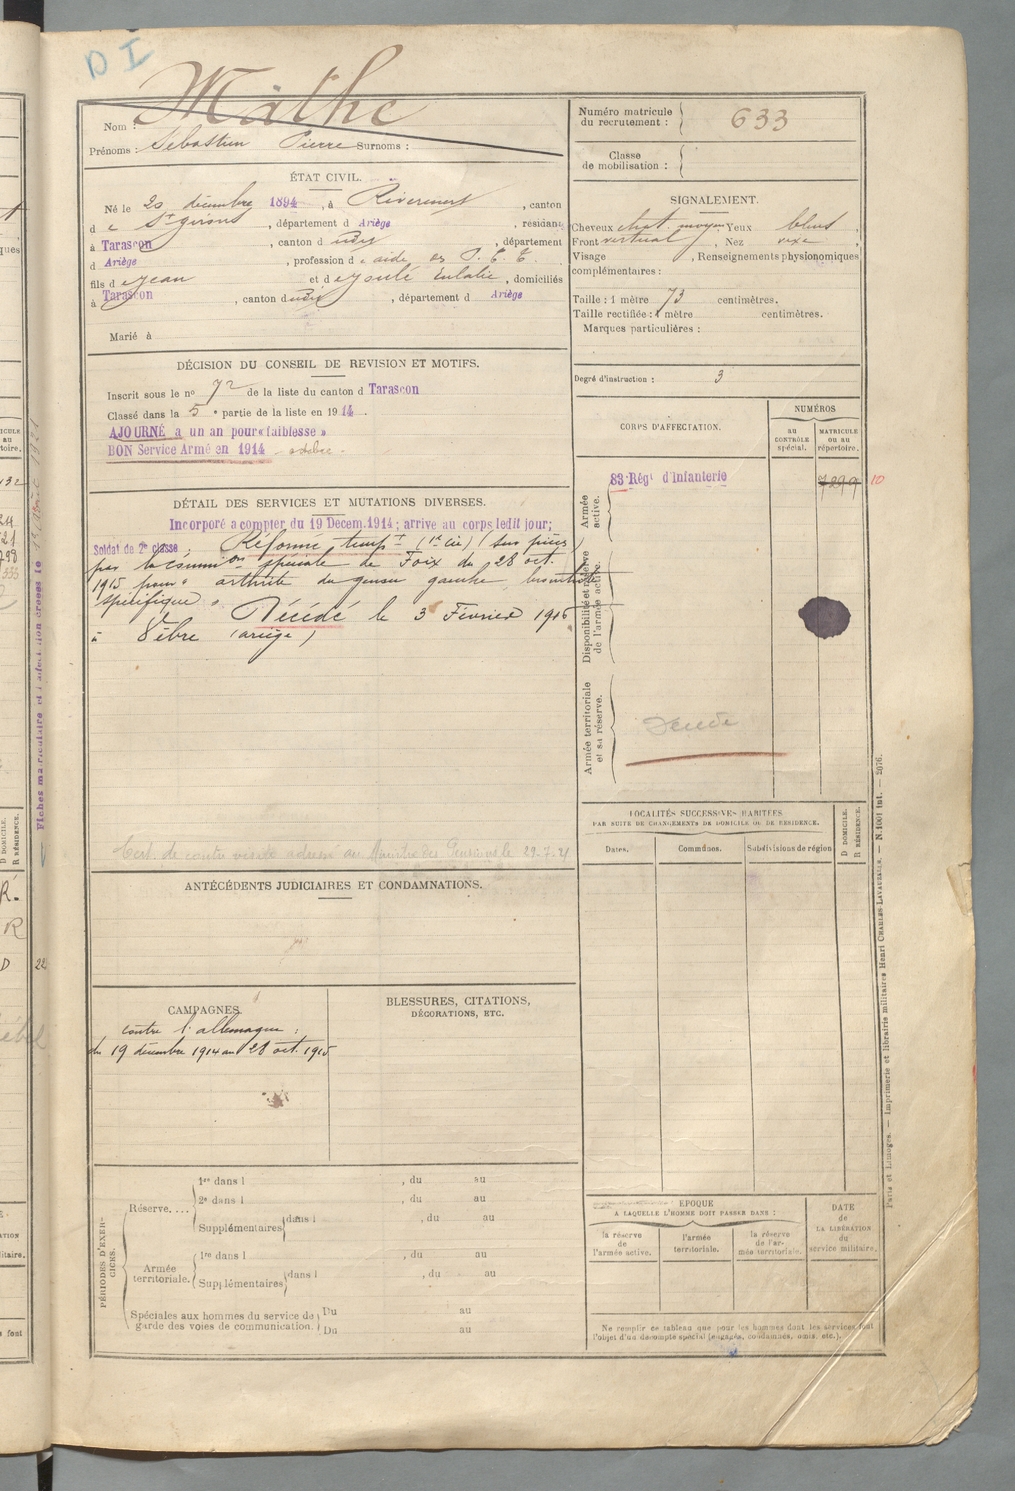 D I
Mathe
Nom :
Prénoms : Sébastien Pierre Surnoms :
Numéro matricule
du recrutement :
633
Classe
de mobilisation :
ÉTAT CIVIL.
Né le 20 décembre 1894, à Rivèrenert, canton
d e St girons, département d Ariège, résidant
à Tarascon, canton d udit, département
d Ariège, profession d e aide
fils d e Jean et d e Soulé Eulalie, domiciliés
à Tarascon, canton d udit, département d Ariège
Marié à
SIGNALEMENT.
Cheveux chat. moyen Yeux bleus,
Front vertical, Nez rexe,
Visage , Renseignements physionomiques
complémentaires :
Taille : 1 mètre 73 centimètres.
Taille rectifiée : 1 mètre centimètres.
Marques particulières :
Degré d'instruction : 3
DÉCISION DU CONSEIL DE REVISION ET MOTIFS.
Inscrit sous le no 72 de la liste du canton d Tarascon
Classé dans la 5e partie de la liste en 1914.
AJOURNÉ a un an pour «faiblesse»
BON Service Armé en 1914 octobre
CORPS D'AFFECTATION.
NUMÉROS
au
CONTRÔLE
spécial.
MATRICULE
ou au
répertoire.
Armée
active.
83 Régt d'Infanterie
7299
10
Disponibilité et réserve
de l'armée active.
Armée territoriale
et sa réserve.
DÉTAIL DES SERVICES ET MUTATIONS DIVERSES.
Incorporé a compter du 19 Decem. 1914 ; arrive au corps ledit jour;
Soldat de 2e classe ; Réformé tempre (1re cie) (sur pièces)
par la commion spéciale de Foix du 28 oct.
1915 pour « arthrite du genou gauche,
spécifique ». Décédé le 3 Février 1916
à (ariège)
Cert. de contre visite adressé au Ministre des Pensions le 29-7-21
Fiches matriculaire et d'affection créées le
LOCALITÉS SUCCESSIVES HABITÉES
PAR SUITE DE CHANGEMENTS DE DOMICILE OU DE RÉSIDENCE.
Dates.
Communes.
Subdivisions de région
D DOMICILE.
R RÉSIDENCE.
ANTÉCÉDENTS JUDICIAIRES ET CONDAMNATIONS.
CAMPAGNES.
contre l'allemagne :
du 19 décembre 1914 au 28 oct. 1915
BLESSURES, CITATIONS,
DÉCORATIONS, ETC.
PÉRIODES D'EXER-
CICES.
Réserve....
1re dans l , du au
2e dans l , du au
Supplémentaires dans l , du au
Armée
territoriale.
1re dans l , du au
Supplémentaires dans l , du au
Spéciales aux hommes du service de
garde des voies de communication.
Du au
Du au
ÉPOQUE
A LAQUELLE L'HOMME DOIT PASSER DANS :
la réserve
de
l'armée active.
l'armée
territoriale.
la réserve
de l'ar-
mée territoriale.
DATE
de
LA LIBÉRATION
du
service militaire.
Ne remplir ce tableau que pour les hommes dont les services font
l'objet d'un décompte spécial (engagés, condamnés, omis, etc.).
Paris et Limoges. — Imprimerie et librairie militaires Henri CHARLES-LAVAUZELLE. — N. 1001 Int. — 2076.